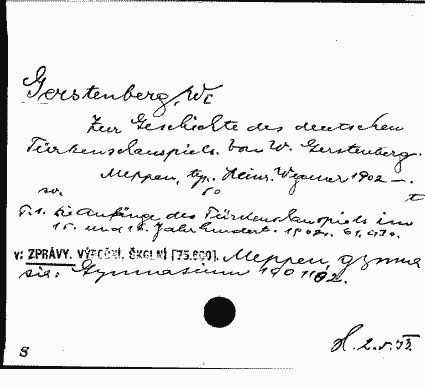 Gerstenberg, W:
Zur Geschichte des deutschen
Türkenschauspiels. Von W. Gerstenberg.
Meppen, typ. Heinr. Wegener 1902 —.
sv. 8°
T.1. Die Anfänge des Türkenschauspiels im
15. und 16. Jahrhundert. 1902.
v: ZPRÁVY. VÝROČNÍ. ŠKOLNÍ [75.600]. Meppen, gymna
sia: Gymnasium 1901/02.
S